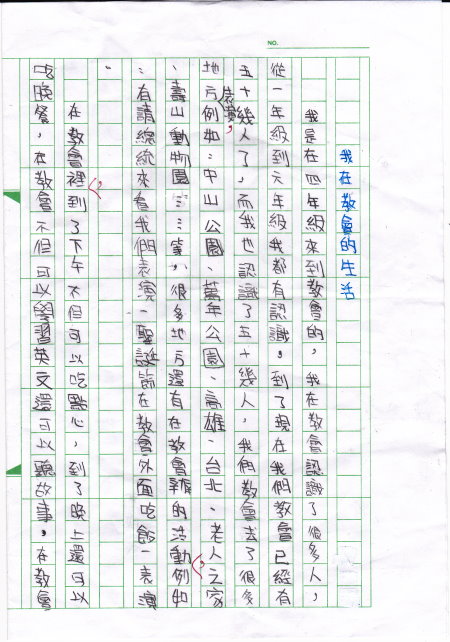 NO.
我在教會的生活
我是在四年級來到教會的,我在教會認識了很多人,
從一年級到六年級我都有認識。到了現在我們教會已經有
五十幾人了,而我也認識了五十幾人,我們教會去了很多
地方表演,例如:中山公園、萬年公園、高雄、台北、老人之家
、壽山動物園……等,很多地方還有在教會辦的活動,例如
:有請總統來看我們表演、聖誕節在教會外面吃飯、表演
。
在教會裡,到了下午不但可以吃點心,到了晚上還可以
吃晚餐,在教會不但可以學習英文還可以聽故事。在教會